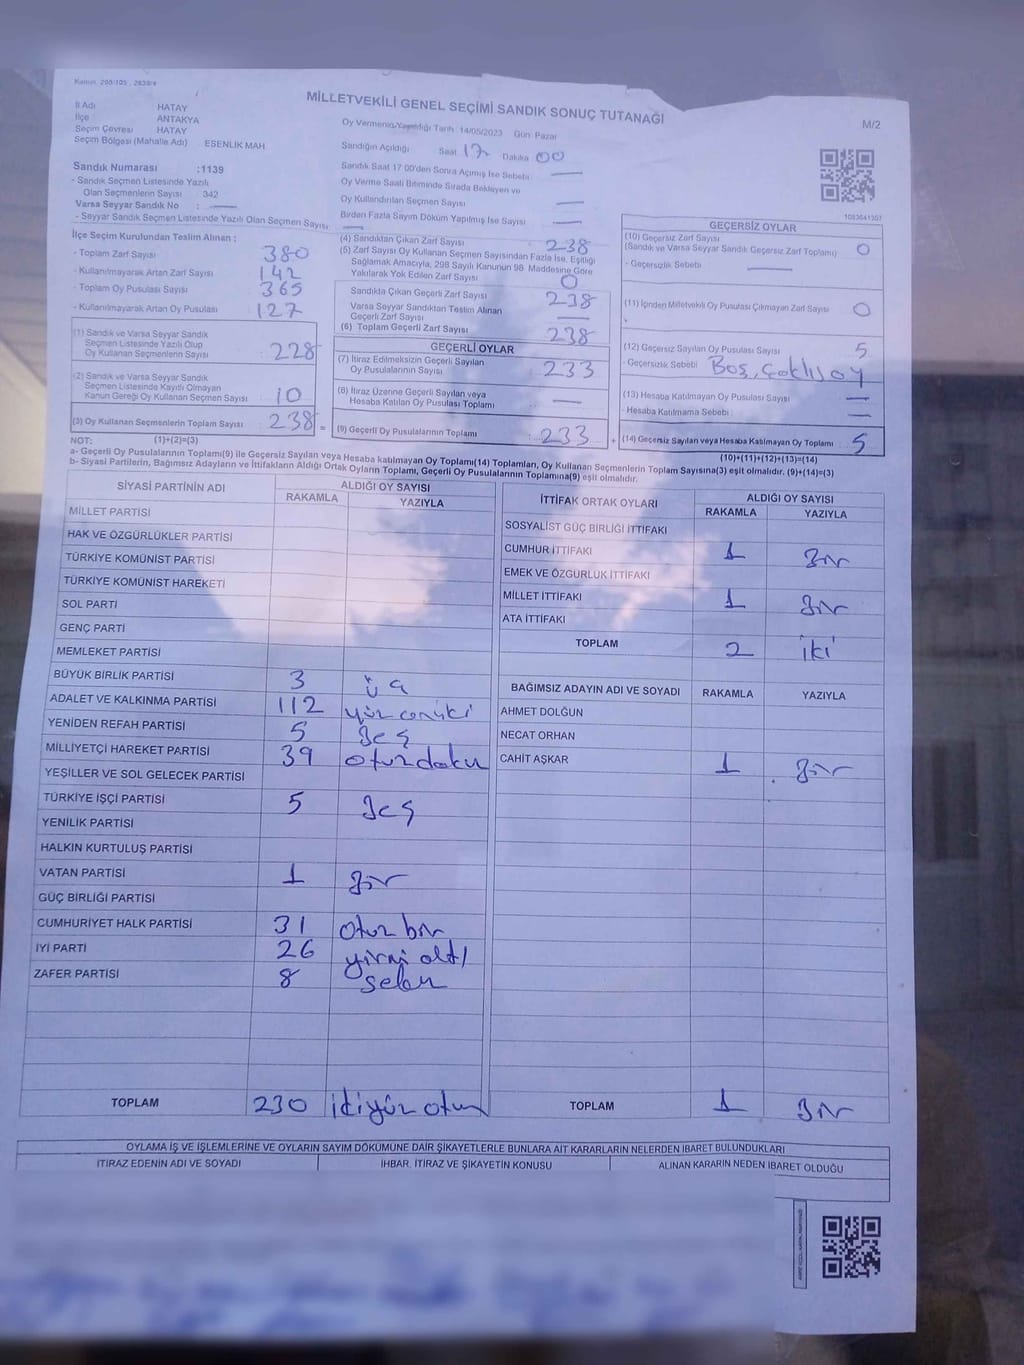 MİLLETVEKİLİ GENEL SEÇİMİ SANDIK SONUÇ TUTANAĞI
M/2
İl Adı HATAY
İlçe ANTAKYA
Seçim Çevresi HATAY
Seçim Bölgesi (Mahalle Adı) ESENLİK MAH
Sandık Numarası :1139
- Sandık Seçmen Listesinde Yazılı
Olan Seçmenlerin Sayısı : 342
Varsa Seyyar Sandık No : —
- Seyyar Sandık Seçmen Listesinde Yazılı Olan Seçmen Sayısı —
Oy Vermenin Yapıldığı Tarih :14/05/2023 Gün: Pazar
Sandığın Açıldığı Saat 17 Dakika 00
Sandık Saat 17.00'den Sonra Açılmış İse Sebebi —
Oy Verme Saati Bitiminde Sırada Bekleyen ve
Oy Kullandırılan Seçmen Sayısı —
Birden Fazla Sayım Döküm Yapılmış İse Sayısı —
1083641307
İlçe Seçim Kurulundan Teslim Alınan :
- Toplam Zarf Sayısı 380
- Kullanılmayarak Artan Zarf Sayısı 142
- Toplam Oy Pusulası Sayısı 365
- Kullanılmayarak Artan Oy Pusulası : 127
(1) Sandık ve Varsa Seyyar Sandık
Seçmen Listesinde Yazılı Olup
Oy Kullanan Seçmenlerin Sayısı : 228
(2) Sandık ve Varsa Seyyar Sandık
Seçmen Listesinde Kayıtlı Olmayan
Kanun Gereği Oy Kullanan Seçmen Sayısı : 10
(3) Oy Kullanan Seçmenlerin Toplam Sayısı : 238 =
(4) Sandıktan Çıkan Zarf Sayısı 238
(5) Zarf Sayısı Oy Kullanan Seçmen Sayısından Fazla İse, Eşitliği
Sağlamak Amacıyla, 298 Sayılı Kanunun 98. Maddesine Göre
Yakılarak Yok Edilen Zarf Sayısı 0
Sandıkta Çıkan Geçerli Zarf Sayısı 238
Varsa Seyyar Sandıktan Teslim Alınan
Geçerli Zarf Sayısı —
(6) Toplam Geçerli Zarf Sayısı 238
GEÇERLİ OYLAR
(7) İtiraz Edilmeksizin Geçerli Sayılan
Oy Pusulalarının Sayısı : 233
(8) İtiraz Üzerine Geçerli Sayılan veya
Hesaba Katılan Oy Pusulası Toplamı : —
(9) Geçerli Oy Pusulalarının Toplamı : 233 +
GEÇERSİZ OYLAR
(10) Geçersiz Zarf Sayısı
(Sandık ve Varsa Seyyar Sandık Geçersiz Zarf Toplamı) : 0
- Geçersizlik Sebebi : —
(11) İçinden Milletvekili Oy Pusulası Çıkmayan Zarf Sayısı : 0
(12) Geçersiz Sayılan Oy Pusulası Sayısı : 5
- Geçersizlik Sebebi : Boş, Çoklu oy
(13) Hesaba Katılmayan Oy Pusulası Sayısı : —
- Hesaba Katılmama Sebebi : —
(14) Geçersiz Sayılan veya Hesaba Katılmayan Oy Toplamı : 5
NOT: (1)+(2)=(3)
(10)+(11)+(12)+(13)=(14)
a- Geçerli Oy Pusulalarının Toplamı(9) ile Geçersiz Sayılan veya Hesaba Katılmayan Oy Toplamı(14) Toplamları, Oy Kullanan Seçmenlerin Toplam Sayısına(3) eşit olmalıdır. (9)+(14)=(3)
b- Siyasi Partilerin, Bağımsız Adayların ve İttifakların Aldığı Ortak Oyların Toplamı, Geçerli Oy Pusulalarının Toplamına(9) eşit olmalıdır.
SİYASİ PARTİNİN ADI ALDIĞI OY SAYISI
RAKAMLA YAZIYLA
MİLLET PARTİSİ
HAK VE ÖZGÜRLÜKLER PARTİSİ
TÜRKİYE KOMÜNİST PARTİSİ
TÜRKİYE KOMÜNİST HAREKETİ
SOL PARTİ
GENÇ PARTİ
MEMLEKET PARTİSİ
BÜYÜK BİRLİK PARTİSİ 3 üç
ADALET VE KALKINMA PARTİSİ 112 yüz on iki
YENİDEN REFAH PARTİSİ 5 Beş
MİLLİYETÇİ HAREKET PARTİSİ 39 otuz dokuz
YEŞİLLER VE SOL GELECEK PARTİSİ
TÜRKİYE İŞÇİ PARTİSİ 5 Beş
YENİLİK PARTİSİ
HALKIN KURTULUŞ PARTİSİ
VATAN PARTİSİ 1 Bir
GÜÇ BİRLİĞİ PARTİSİ
CUMHURİYET HALK PARTİSİ 31 otuz bir
İYİ PARTİ 26 yirmi altı
ZAFER PARTİSİ 8 sekiz
TOPLAM 230 ikiyüz otuz
İTTİFAK ORTAK OYLARI ALDIĞI OY SAYISI
RAKAMLA YAZIYLA
SOSYALİST GÜÇ BİRLİĞİ İTTİFAKI
CUMHUR İTTİFAKI 1 Bir
EMEK VE ÖZGÜRLÜK İTTİFAKI
MİLLET İTTİFAKI 1 Bir
ATA İTTİFAKI
TOPLAM 2 iki
BAĞIMSIZ ADAYIN ADI VE SOYADI RAKAMLA YAZIYLA
AHMET DOLĞUN
NECAT ORHAN
CAHİT AŞKAR 1 Bir
TOPLAM 1 Bir
OYLAMA İŞ VE İŞLEMLERİNE VE OYLARIN SAYIM DÖKÜMÜNE DAİR ŞİKAYETLERLE BUNLARA AİT KARARLARIN NELERDEN İBARET BULUNDUKLARI
İTİRAZ EDENİN ADI VE SOYADI İHBAR, İTİRAZ VE ŞİKAYETİN KONUSU ALINAN KARARIN NEDEN İBARET OLDUĞU